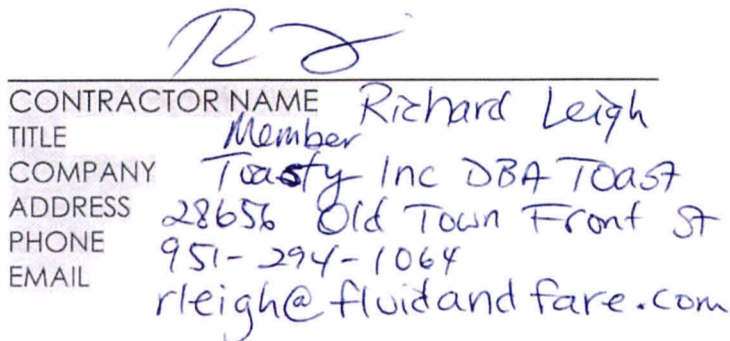 CONTRACTOR NAME Richard Leigh
TITLE Member
COMPANY Toasty Inc DBA Toast
ADDRESS 28656 Old Town Front St
PHONE 951-294-1064
EMAIL rleigh@fluidandfare.com